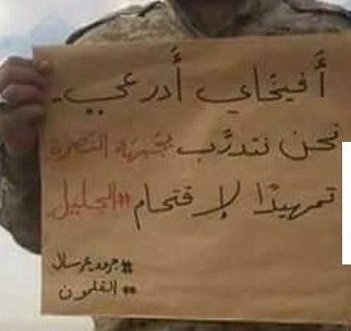 أَفيخاي أَدرعي.
نحن نتدرَّب بجبهة النُّصرة
تمهيدًا لإقتحام #الجليل
#جرود_عرسال
#القلمون